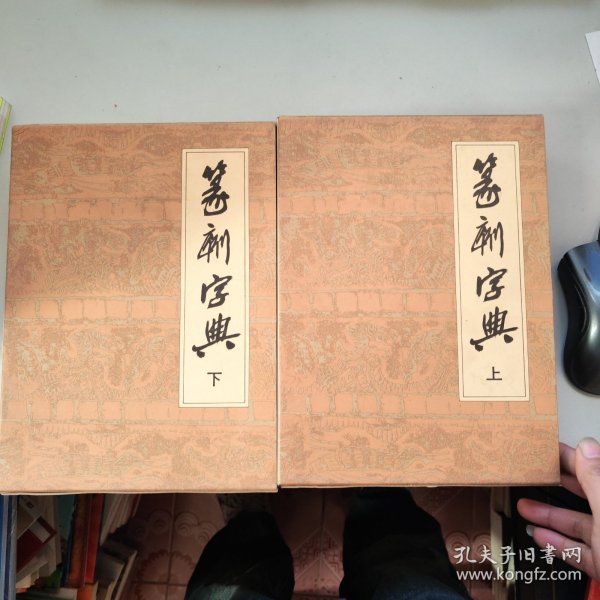 篆刻字典
下
篆刻字典
上
孔夫子旧书网
www.kongfz.com